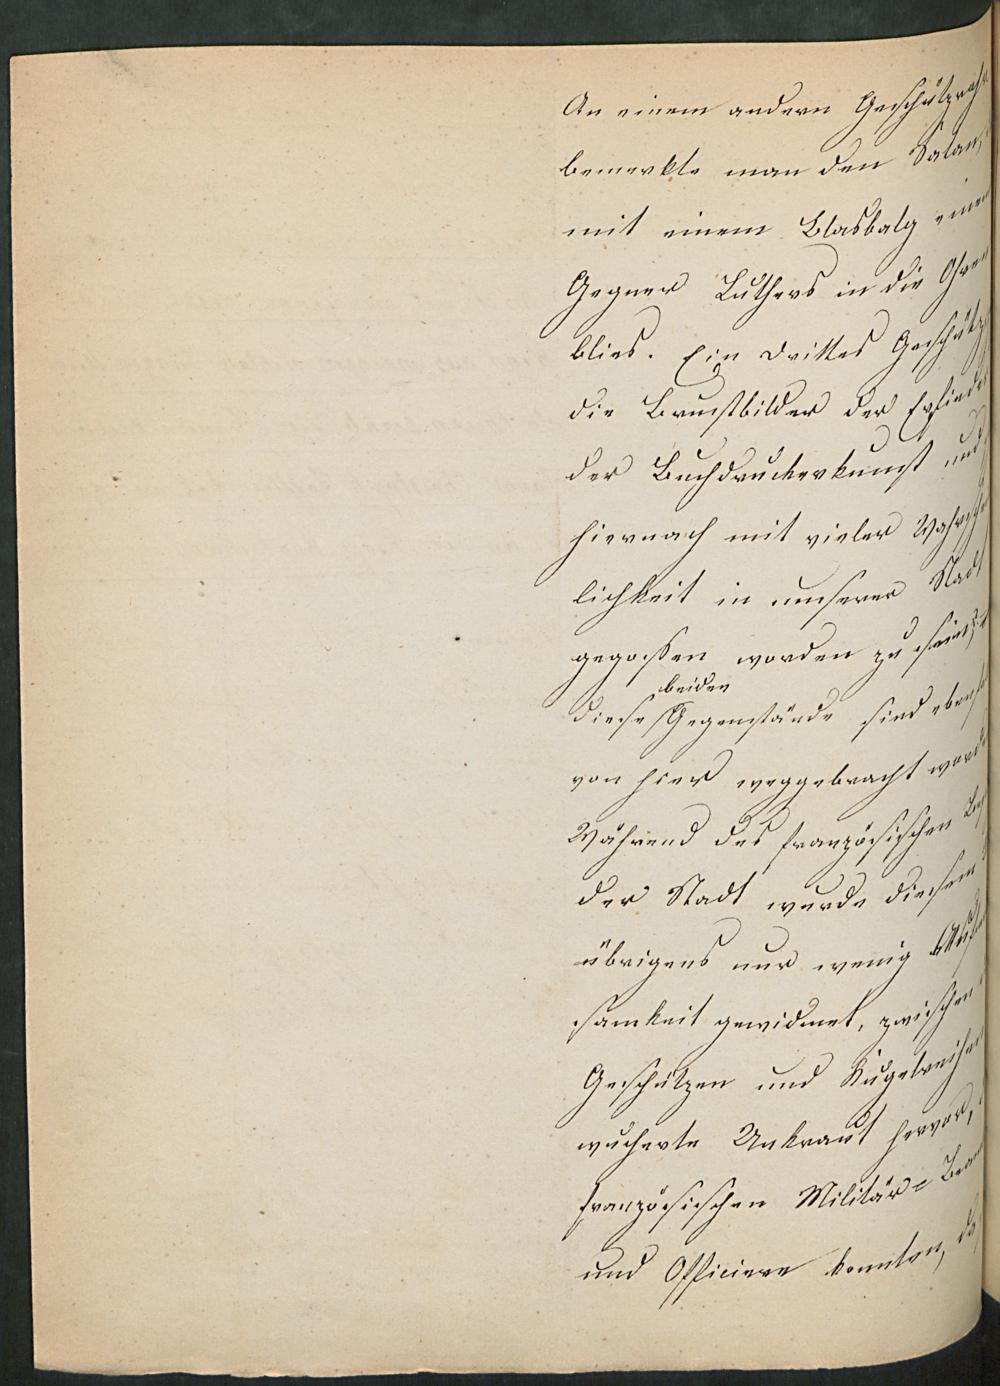 An einem andern Geschützroh
bemerkte man den Satan,
mit einem Blasbalg einem
Gegner Luthers in die Ohren
blies. Ein drittes Geschütz
die Brustbilder der Erfinder
der Buchdruckerkunst und
hiernach mit vieler Wahrsche
lichkeit in unserer Stadt
gegossen worden zu sein,
beiden
diese Gegenstände sind ebenso
von hier weggebracht worde
Während des französischen Be
der Stadt wurde diesem
übrigens nur wenig Aufm
samkeit gewidmet, zwischen
Geschützen und Kugelreihen
wucherte Unkraut hervor,
französischen Militär= Beam
und Officiere konnten, da